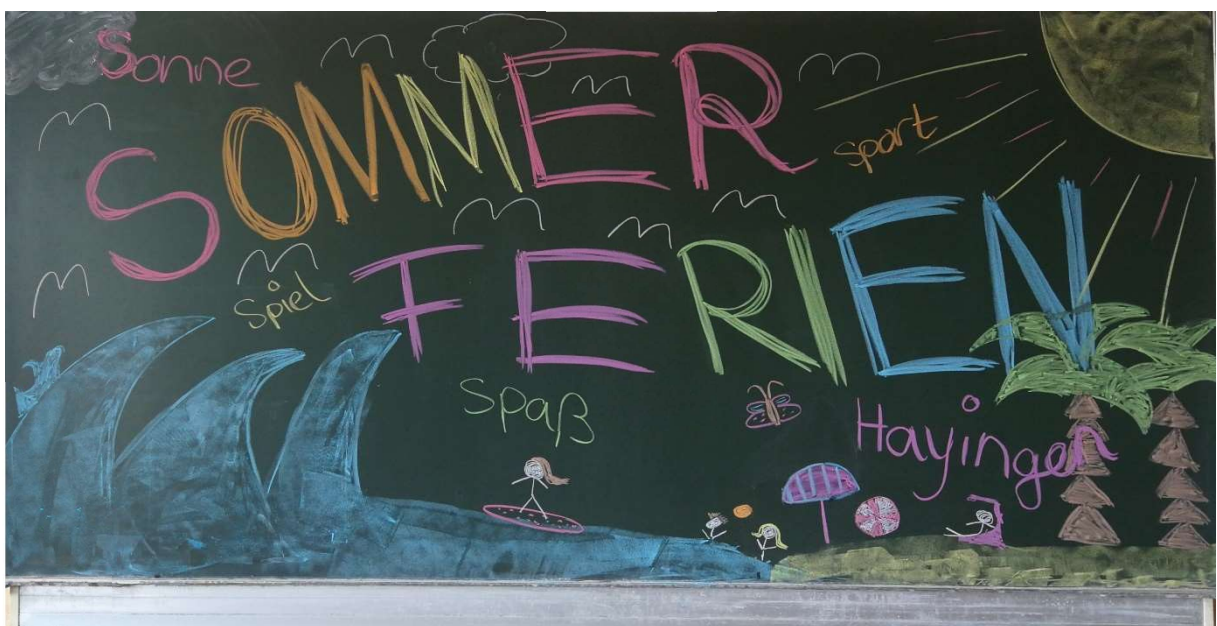 Sonne
SOMMER
Sport
FERIEN
Spiel
Spaß
Hayingen